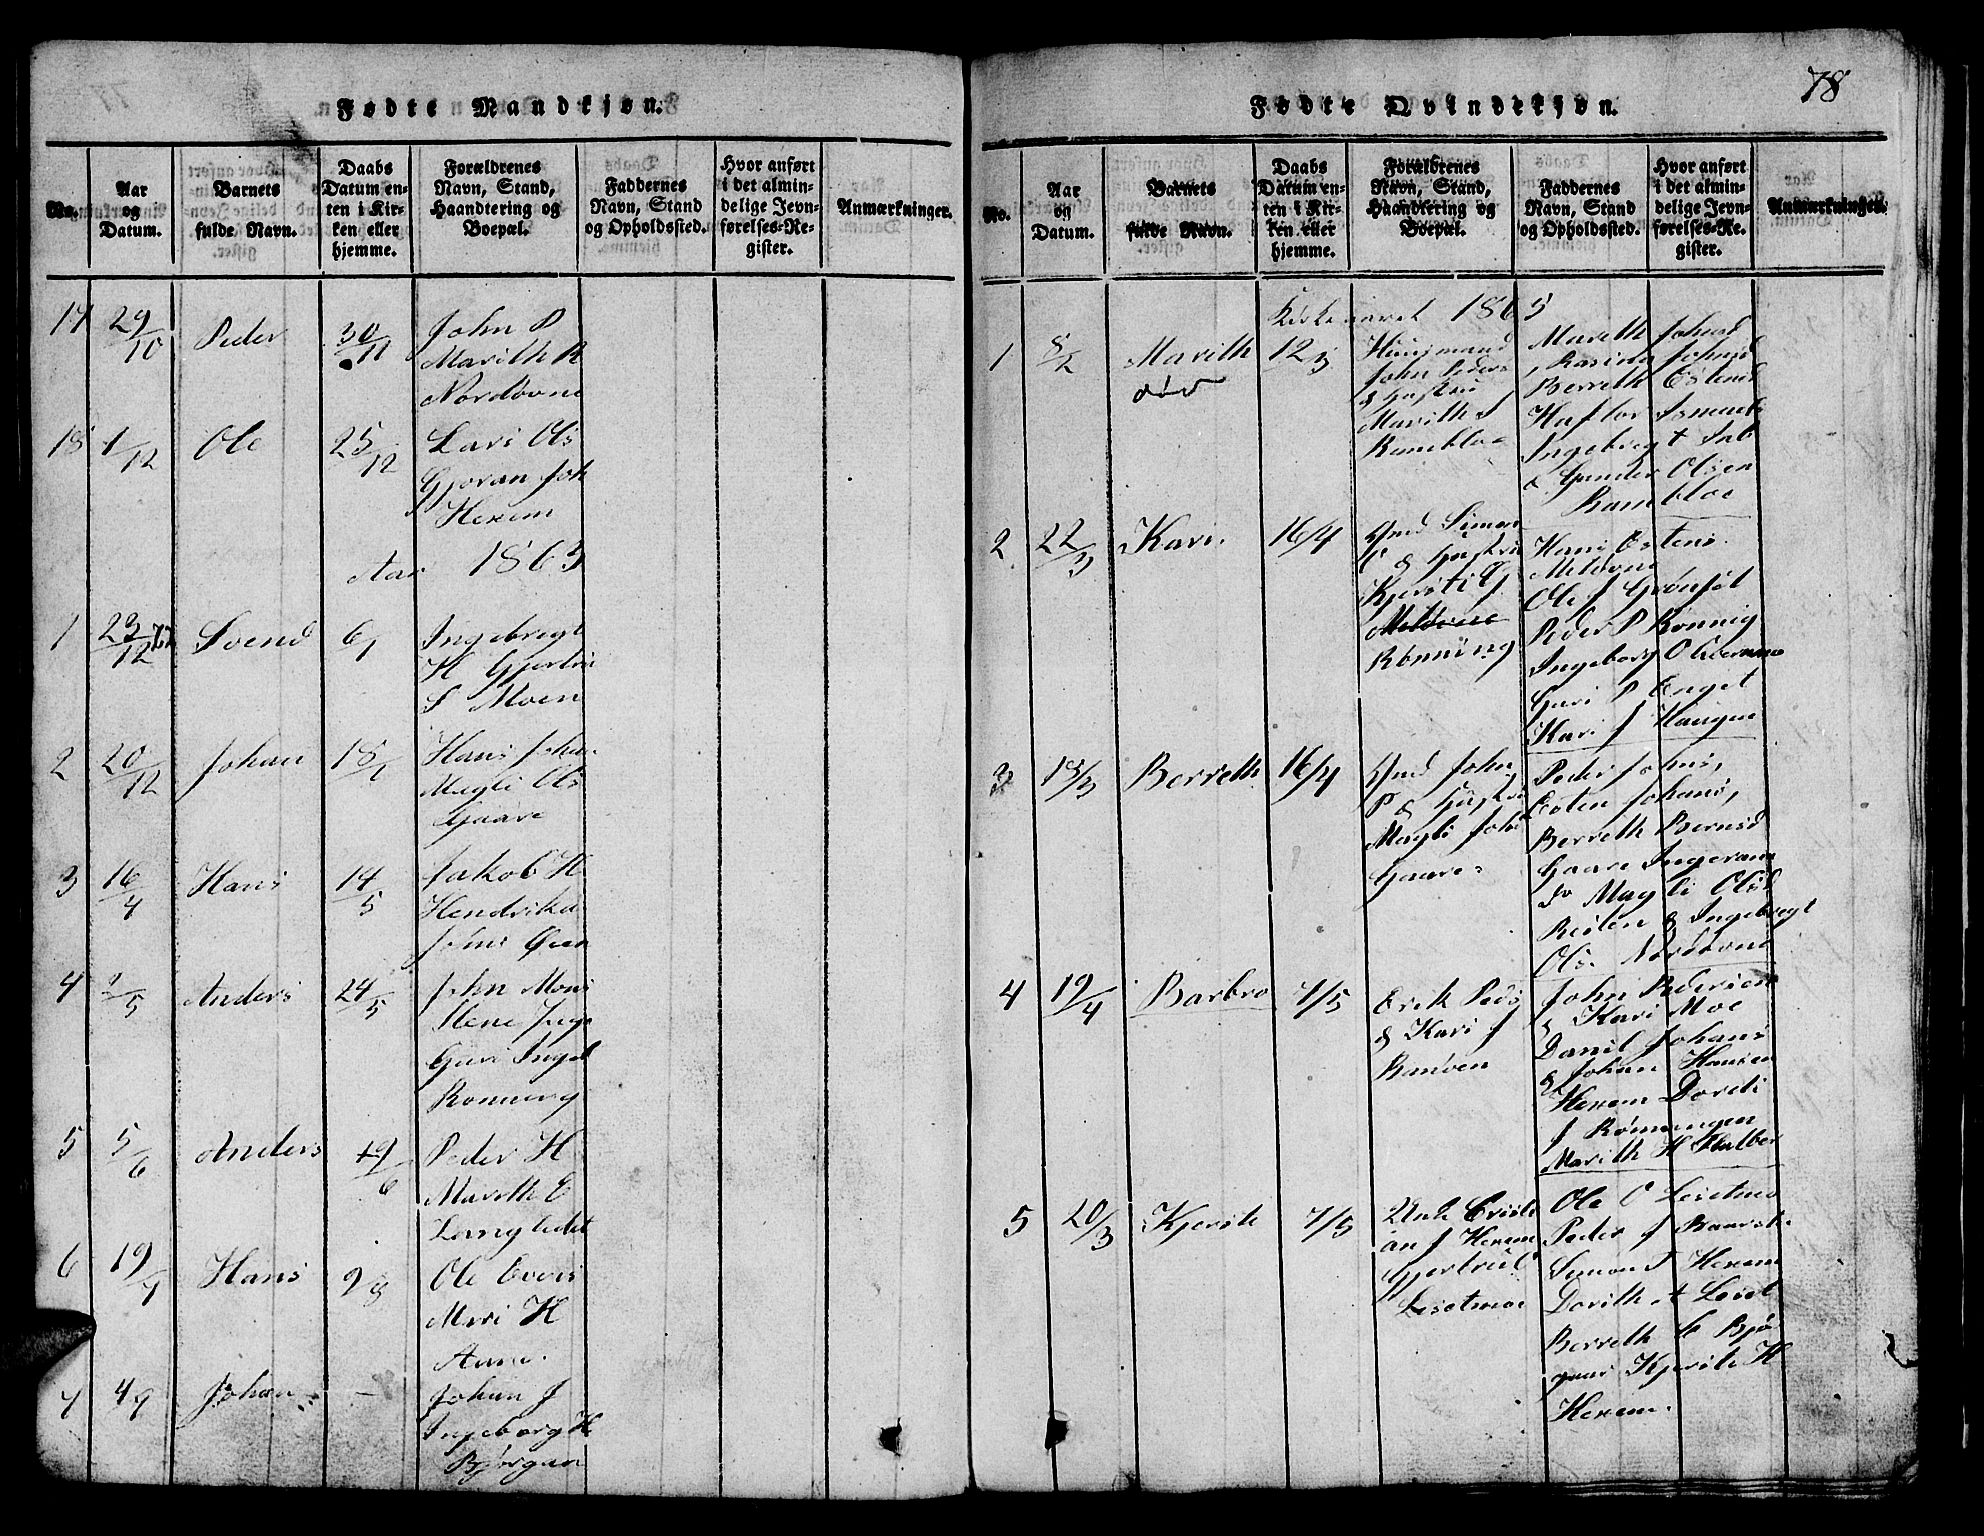 78
Fødte Mandkjøn.
No.
Aar og Datum.
Barnets fulde Navn.
Daabs Datum enten i Kirken eller hjemme.
Forældrenes Navn, Stand, Haandtering og Boepæl.
Faddernes Navn, Stand og Opholdssted.
Hvor anført i det almindelige Jevnførelses-Register.
Anmærkninger.
17 29/10 Peder 30/11 John P
Marith R
Nordovne
18 1/12 Ole 25/12 Lars Ols
Gjoran Joh
Hexem
Aar 1863
1 23/12 Svend 6/1 Ingebregt
H Gjertru
S Moen
2 20/12 Johan 18/1 Hans Johan
Magli Ols
Gaare
3 16/4 Hans 14/5 Jakob H
Hendrika
Johns Øien
4 2/5 Anders 24/5 John Mons
Guri Ingeb
Ronning
5 5/6 Anders 19/6 Peder H
Marith E
Langledet
6 19/7 Hans 9/8 Ole Evens
Mari H
Aane.
7 4/9 Johan - Johan J
Ingeborg H
Bjørgan
Fødte Qvindekjøn.
No.
Aar og Datum.
Barnets fulde Navn.
Daabs Datum enten i Kirken eller hjemme.
Forældrenes Navn, Stand, Haandtering og Boepæl.
Faddernes Navn, Stand og Opholdssted.
Hvor anført i det almindelige Jevnførelses-Register.
Anmærkninger.
Kirkeaaret 1863
1 8/2 Marith 12/3 Huusmand
død
John Peders
& Hustru
Marith J
Rambloe
Mareth Johnsd
Berreth Estensd
Haflor
Ingebregt
& Gunder Olsen
Rambloe
2 22/3 Kari 16/4 Gmd Simon
P & Hustru
Kjersti G
Meløvne
Rønning
Hans Estens.
Meløvne
Ole J Grønset
Peder P Ronnig
Ingeborg O
Guri P Enget
Kari J Haugen
3 18/3 Berreth 16/4 Gmd John
P & Hustru
Magli Johs
Gaare
Peder Johns,
Esten Johans,
Berreth Bernsd
Gaare
Magli Olsd
Reiten & Ingebregt
Ols. Nordovne
4 19/4 Barbro 7/5 Erik Peds
& Kari J
Ramoen
John Pedersen
& Kari Moe
Danil Johans
& Johan Hansen
Hexem Dordi
J Rønningen
Marith H
5 20/3 Kjersti 7/5 Unk Cristi
an J Hexem
Gjertrud
Lesetmoe
Ole O Lesetmo
Peder J
Simon J Hexem
Dorith A Leset
Berreth
Kjersti H
Hexem.